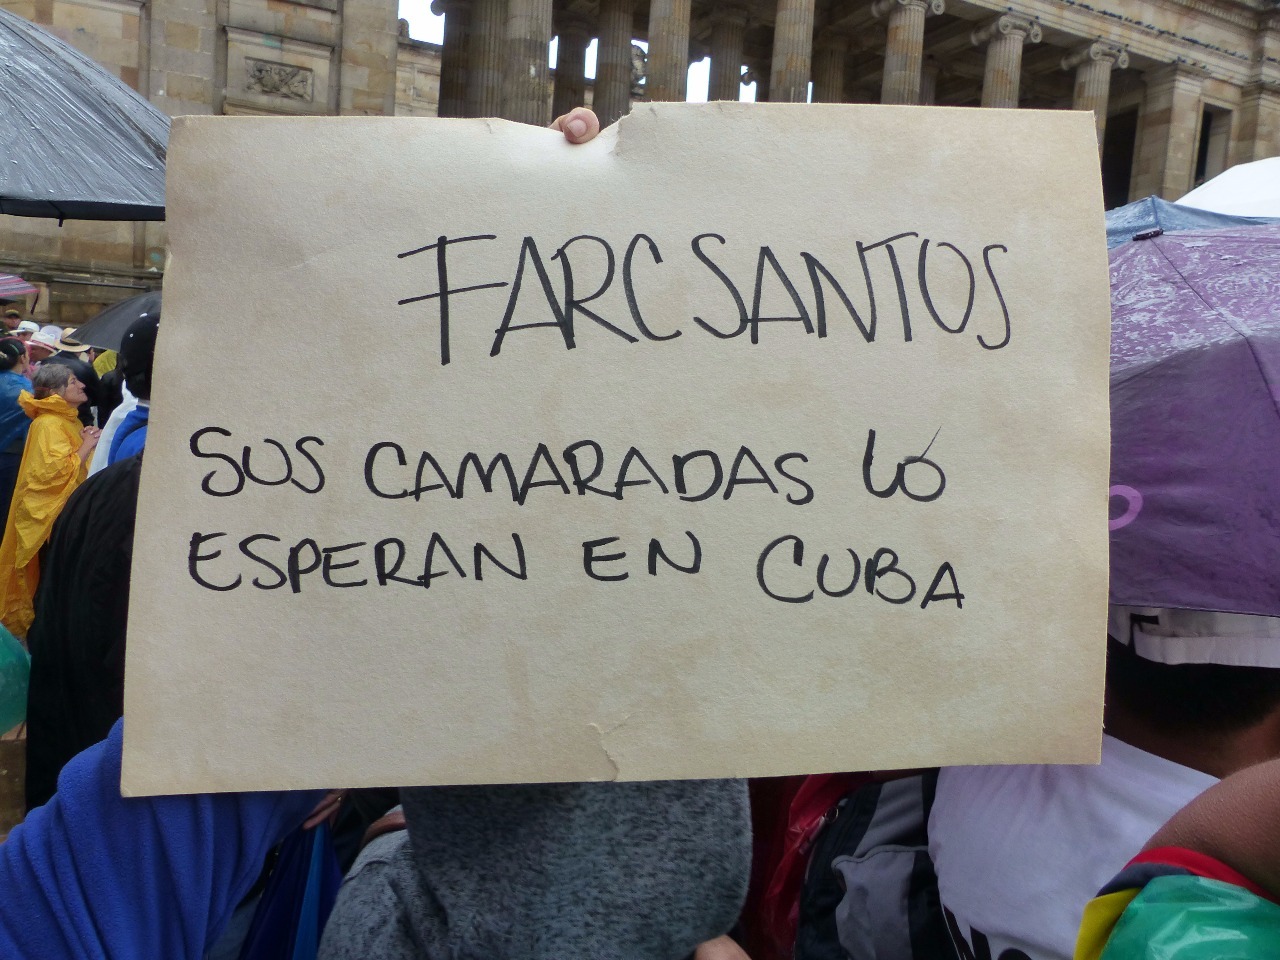 FARCSANTOS
SUS CAMARADAS LO
ESPERAN EN CUBA